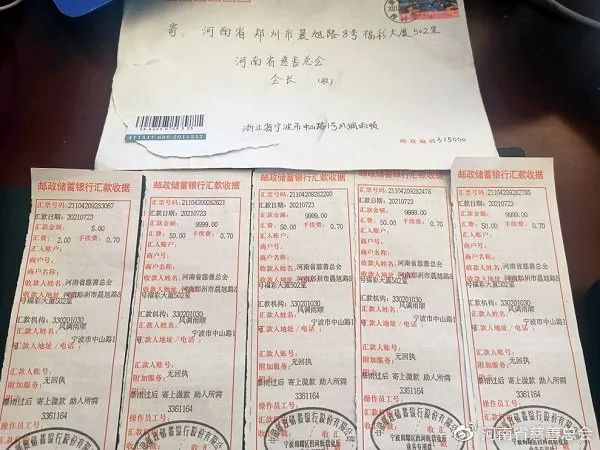 寄: 河南省郑州市晨旭路8号福彩大厦502室
河南省慈善总会
会长 (收)
浙江省宁波市中山路1号风调雨顺
邮政编码315000
邮政储蓄银行汇款收据
汇票号码:211042092830​67
汇款日期:20210723
汇款金额: 5.00
汇费: 2.00 手续费: 0.70
汇入账户:
商户号:
商户名称:
收款人姓名:河南省慈善总会
收款人地址:河南郑州市晨旭路8
号福彩大厦502室
汇款机构:330201030
汇款人姓名:风调雨顺
汇款人地址/电话:宁波市中山路1
号
汇款人账号:
附加服务: 无回执
附言:
暴雨过后 寄上微款 助人所需
操作员号: 3361164
邮政储蓄银行汇款收据
汇票号码:21104209282621
汇款日期:20210723
汇款金额: 9999.00
汇费: 50.00 手续费: 0.70
汇入账户:
商户号:
商户名称:
收款人姓名:河南省慈善总会
收款人地址:河南郑州市晨旭路8
号福彩大厦502室
汇款机构:330201030
汇款人姓名:风调雨顺
汇款人地址/电话:宁波市中山路1
号
汇款人账号:
附加服务: 无回执
暴雨过后 寄上微款 助人所需
操作员工号: 3361164
邮政储蓄银行汇款收据
汇票号码:21104209282200
汇款日期:20210723
汇款金额: 9999.00
汇费: 50.00 手续费: 0.70
汇入账户:
商户号:
商户名称:
收款人姓名:河南省慈善总会
收款人地址:河南郑州市晨旭路8
号福彩大厦502室
汇款机构:330201030
汇款人姓名:风调雨顺
汇款人地址/电话:宁波市中山路1
号
汇款人账号:
附加服务: 无回执
暴雨过后 寄上微款 助人所需
操作员工号: 3361164
邮政储蓄银行汇款收据
汇票号码:21104209282478
汇款日期:20210723
汇款金额: 9999.00
汇费: 50.00 手续费: 0.70
汇入账户:
商户号:
商户名称:
收款人姓名:河南省慈善总会
收款人地址:河南郑州市晨旭路8
号福彩大厦502室
汇款机构:330201030
汇款人姓名:风调雨顺
汇款人地址/电话:宁波市中山路1
号
汇款人账号:
附加服务: 无回执
暴雨过后 寄上微款 助人所需
操作员工号: 3361164
邮政储蓄银行汇款收据
汇票号码:21104209282785
汇款日期:20210723
汇款金额: 9999.00
汇费: 50.00 手续费: 0.70
汇入账户:
商户号:
商户名称:
收款人姓名:河南省慈善总会
收款人地址:河南郑州市晨旭路8
号福彩大厦502室
汇款机构:330201030
汇款人姓名:风调雨顺
汇款人地址/电话:宁波市中山路1
号
汇款人账号:
附加服务: 无回执
暴雨过后 寄上微款 助人所需
操作员工号: 3361164
@河南省慈善总会